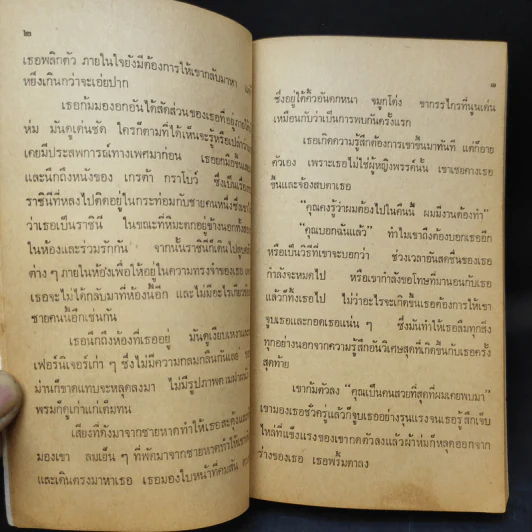 ๒
เธอพลิกตัว ภายในใจยังมีต้องการให้เขากลับมาหา
หยิ่งเกินกว่าจะเอ่ยปาก
เธอก้มมองอกอันได้สัดส่วนของเธอที่อยู่ภายใต้
ห่ม มันดูเด่นชัด ใครก็ตามที่ได้เห็นจะรู้หรือเปล่าว่า
เคยมีประสพการณ์ทางเพศมาก่อน เธอยกมือขึ้น
และนึกถึงหนังของ เกรต้า กราโบว์ ซึ่งเป็นเรื่อง
ราชินีที่หลงไปติดอยู่ในกระท่อมกับชายคนหนึ่งซึ่ง
ว่าเธอเป็นราชินี ในขณะที่หิมะตกอยู่ข้างนอกทั้งสอง
ในห้องและร่วมรักกัน จากนั้นราชินีก็เดินไป
ต่าง ๆ ภายในห้องเพื่อให้อยู่ในความทรงจำของเธอ
เธอจะไม่ได้กลับมาที่ห้องนี้อีก และไม่มีอะไรเกี่ยวข้อง
ชายคนนี้อีกเช่นกัน
เธอนึกถึงห้องที่เธออยู่ มันดูเงียบเหงา
เฟอร์นิเจอร์เก่า ๆ ซึ่งไม่มีความกลมกลืนกันเลย
ม่านก็ขาดแทบจะหลุดลงมา ไม่มีรูปภาพตามฝาผนัง
พรมก็ดูเก่าแก่เต็มทน
เสียงที่ดังมาจากชายหาดทำให้เธอสะดุ้ง
มองเขา ลมเย็น ๆ ที่พัดมาจากชายหาดทำให้เขา
และเดินตรงมาหาเธอ เธอมองใบหน้าที่คมสัน
๓
ซึ่งอยู่ใต้คิ้วอันดกหนา จมูกโด่ง ขากรรไกรที่นูนเด่น
เหมือนกับว่าเป็นการพบกันครั้งแรก
เธอเกิดความรู้สึกต้องการเขาขึ้นมาทันที แต่ก็อาย
ตัวเอง เพราะเธอไม่ใช่ผู้หญิงพรรค์นั้น เขาเชยคางเธอ
ขึ้นและจ้องสบตาเธอ
“คุณคงรู้ว่าผมต้องไปในคืนนี้ ผมมีงานต้องทำ”
“คุณบอกฉันแล้ว” ทำไมเขาถึงต้องบอกเธออีก
หรือเป็นวิธีที่เขาจะบอกว่า ช่วงเวลาอันสดชื่นของเธอ
กำลังจะหมดไป หรือเขากำลังขอโทษที่มานอนกับเธอ
แล้วก็ทิ้งเธอไป ไม่ว่าอะไรจะเกิดขึ้นเธอต้องการให้เขา
จูบเธอและกอดเธอแน่น ๆ ซึ่งมันทำให้เธอลืมทุกสิ่ง
ทุกอย่างนอกจากความรู้สึกอันวิเศษสุดที่เกิดขึ้นกับเธอครั้ง
สุดท้าย
เขาก้มตัวลง “คุณเป็นคนสวยที่สุดที่ผมเคยพบมา”
เขามองเธอชั่วครู่แล้วก็จูบเธออย่างรุนแรงจนเธอรู้สึกเจ็บ
ไหล่ที่แข็งแรงของเขากดตัวลงแล้วผ้าห่มก็หลุดออกจาก
ร่างของเธอ เธอพริ้มตาลง